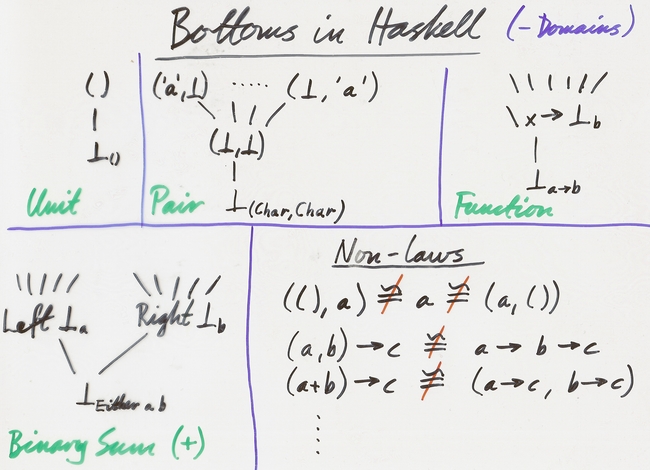 Bottoms in Haskell (-Domains)
()
⊥()
Unit
('a',⊥) ..... (⊥,'a')
(⊥,⊥)
⊥(Char,Char)
Pair
\x→⊥b
⊥a→b
Function
Left ⊥a Right ⊥b
⊥Either a b
Binary Sum (+)
Non-laws
((),a) ≇ a ≇ (a,())
(a,b)→c ≇ a→b→c
(a+b)→c ≇ (a→c, b→c)